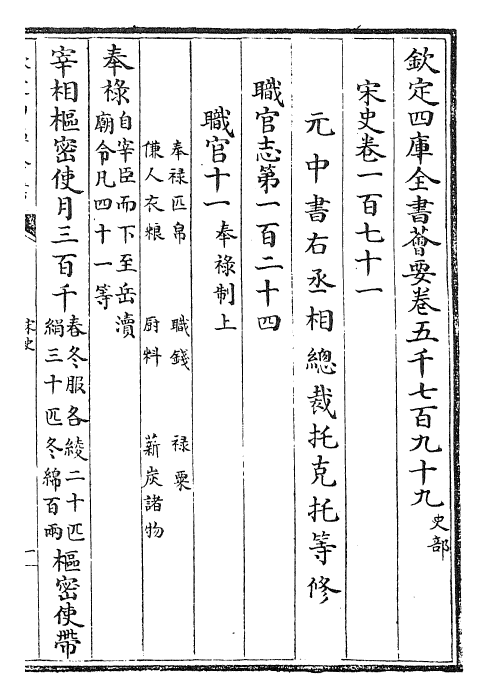 欽定四庫全書薈要卷五千七百九十九史部
宋史卷一百七十一
元中書右丞相總裁托克托等修
職官志第一百二十四
職官十一奉祿制上
奉祿匹帛 職錢 祿粟
傔人衣粮 厨料 薪炭諸物
奉祿自宰臣而下至岳瀆
廟令凡四十一等
宰相樞密使月三百千春冬服各綾二十匹
絹三十匹冬綿百兩樞密使帶
宋史